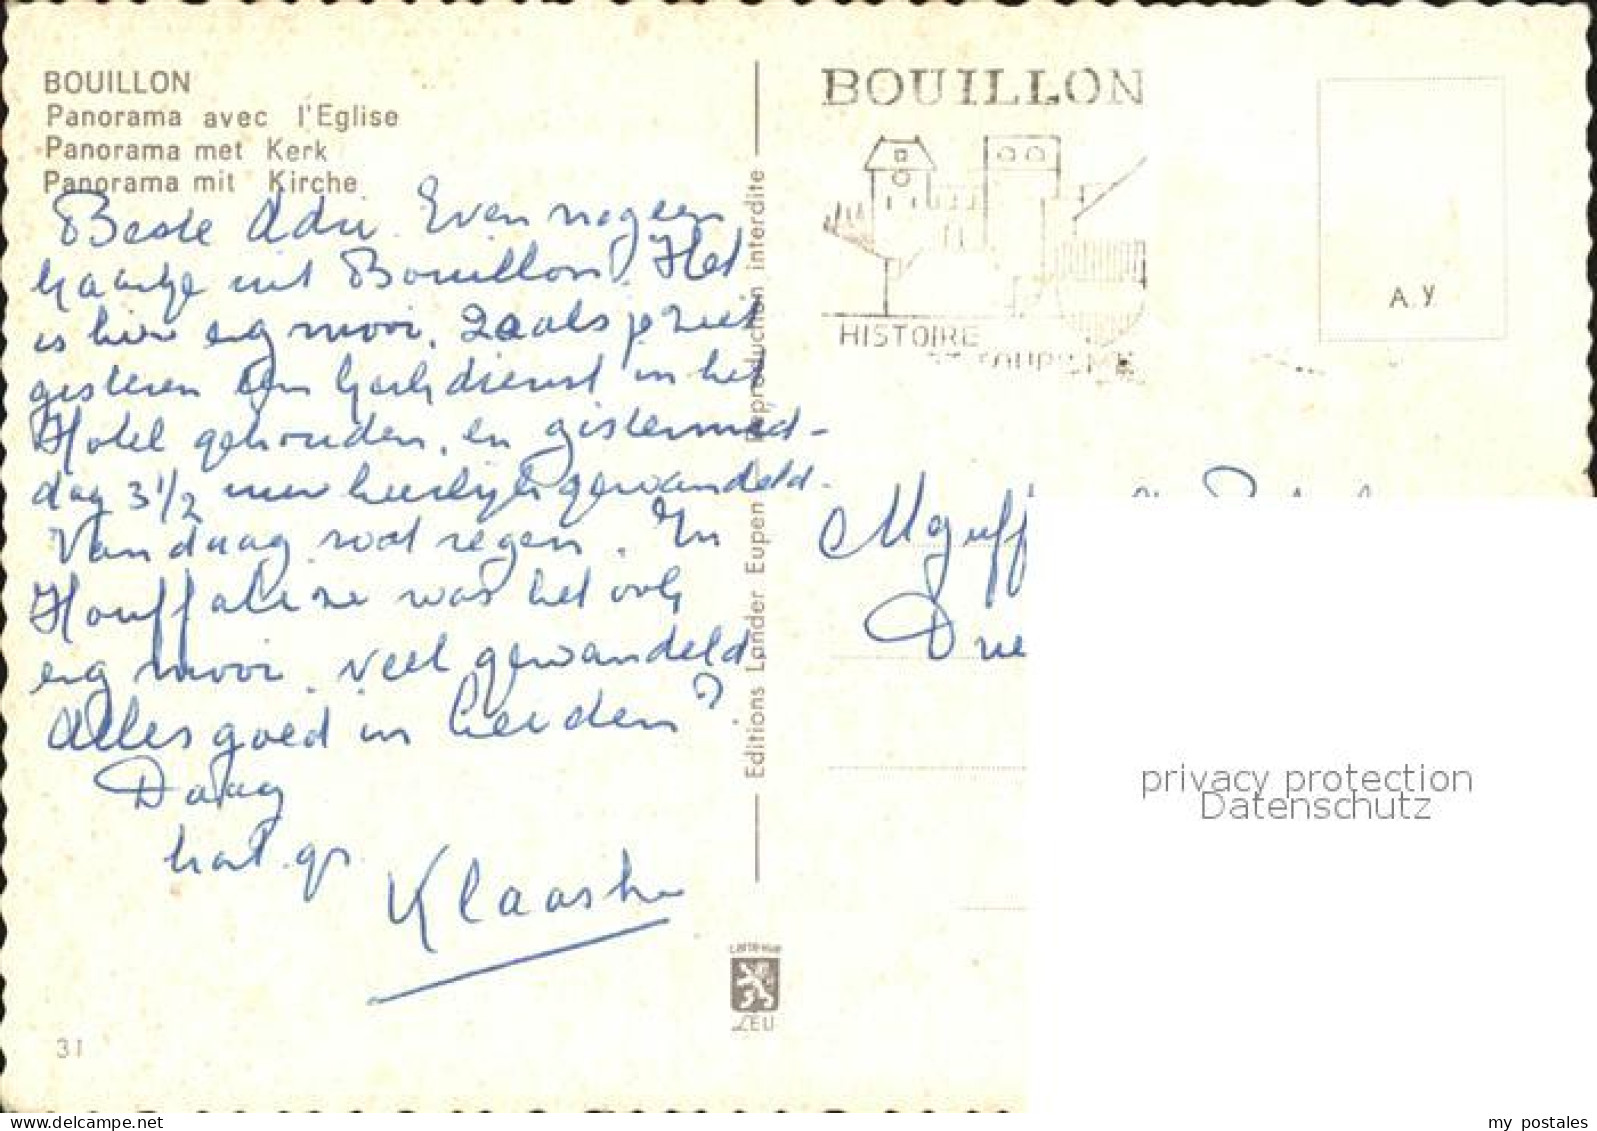 BOUILLON
Panorama avec l'Eglise
Panorama met Kerk
Panorama mit Kirche
Beste Adri. Even nog een
kaartje uit Bouillon. Het
is hier erg mooi. Zoals je ziet
gisteren een kerkdienst in het
Hotel gehouden, en gistermid-
dag 3 1/2 uur heerlijk gewandeld.
Vandaag wat regen. In
Houffalize was het ook
erg mooi. veel gewandeld
Alles goed in Leiden?
Daag
hart. gr.
Klaaske
31
Editions Lander Eupen — Reproduction interdite
carte vue
LEU
BOUILLON
HISTOIRE
A. y
Mejuff
privacy protection
Datenschutz
my postales